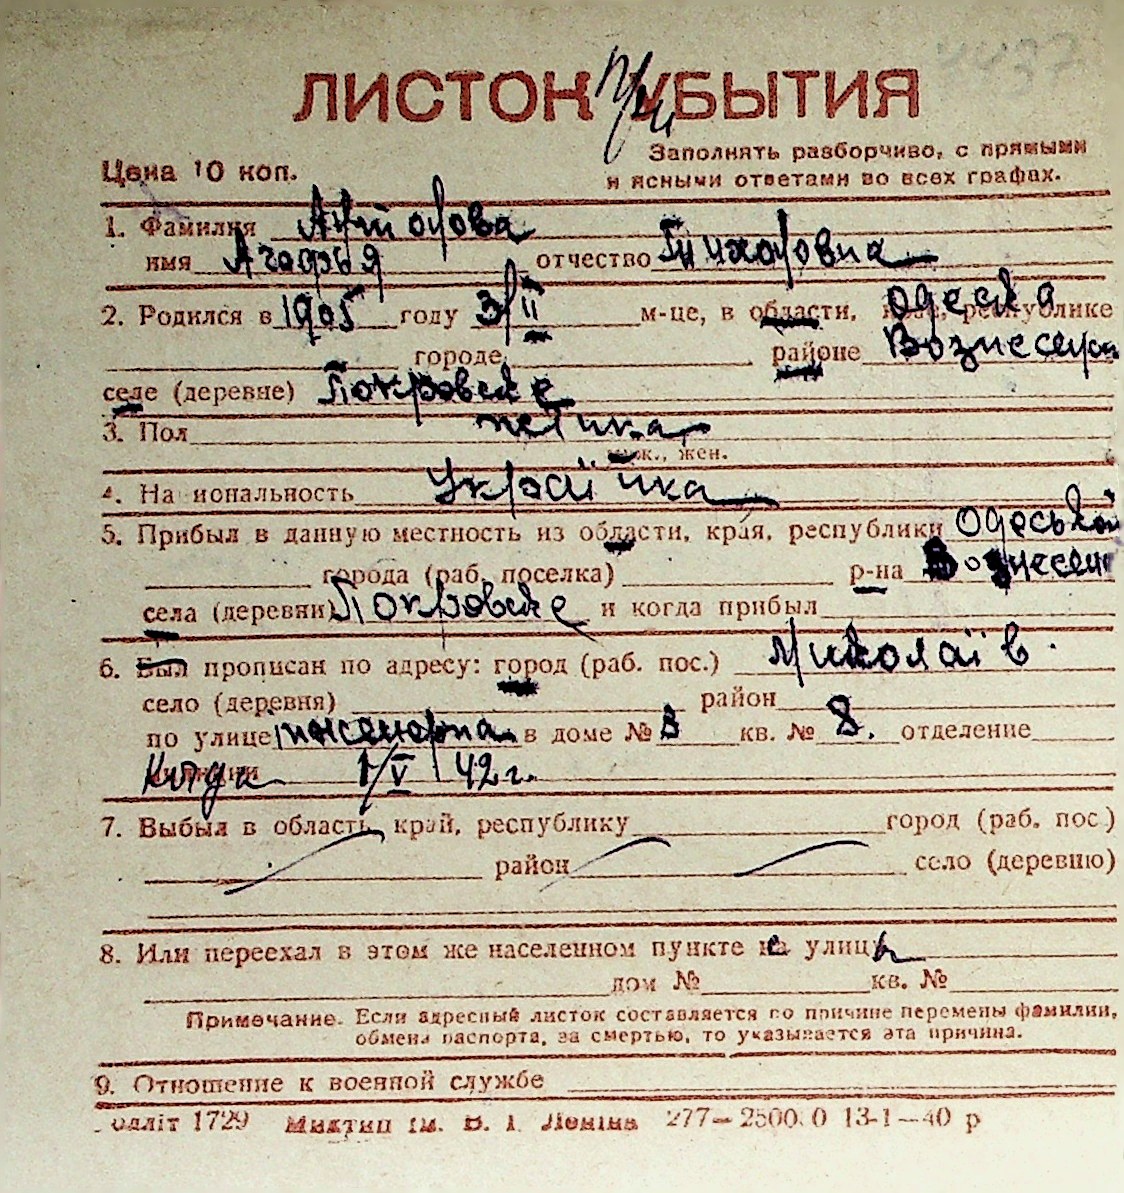 4437
ЛИСТОК при УБЫТИЯ
Цена 10 коп.
Заполнять разборчиво, с прямыми
и ясными ответами во всех графах.
1. Фамилия
имя Агафья отчество Тихоровна
2. Родился в 1905 году 3/II м-це, в области, крае, республике Одеска
городе районе Вознесенск
селе (деревне) Покровске
3. Пол жетика
муж., жен.
4. На иональность Українка
5. Прибыл в данную местность из области, края, республики Одеської
города (раб. поселка) р-на Вознесенс
села (деревни) Покровске и когда прибыл
6. Был прописан по адресу: город (раб. пос.) Миколаїв.
село (деревня) район
по улице Інженерна в доме № 3 кв. № 8. отделение
милиции 1/V 42 г.
7. Выбыл в область, край, республику город (раб. пос.)
район село (деревню)
8. Или переехал в этом же населенном пункте на улицу
дом № кв. №
Примечание. Если адресный листок составляется по причине перемены фамилии,
обмена паспорта, за смертью, то указывается эта причина.
9. Отношение к военной службе
одліт 1729 Миктип ім. В. І. Леніна 277—25000 13-1—40 р